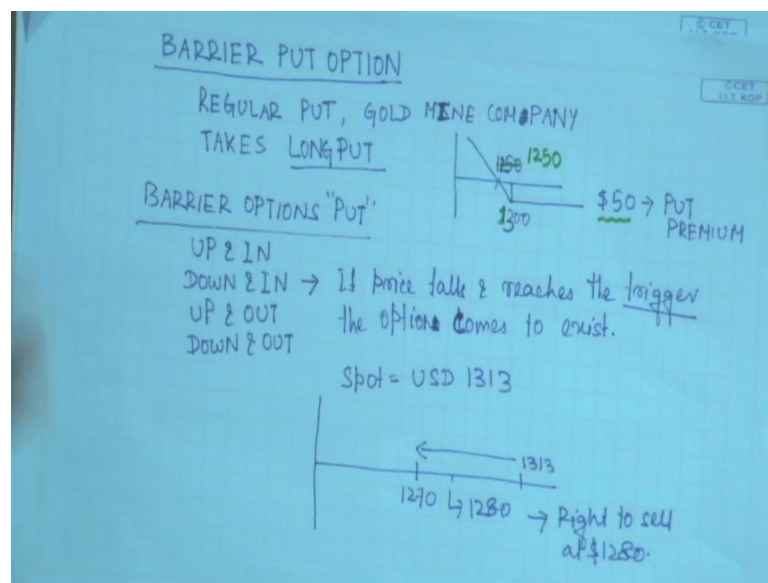 © CET
I.I.T. KGP
BARRIER PUT OPTION
© CET
I.I.T. KGP
REGULAR PUT, GOLD MINE COMPANY
TAKES LONG PUT
1250 1250
1300
$50 → PUT
PREMIUM
BARRIER OPTIONS "PUT"
UP & IN
DOWN & IN → If price falls & reaches the trigger
UP & OUT the option comes to exist.
DOWN & OUT
Spot = USD 1313
1313
1270 ↳ 1280 → Right to sell
at $1280.